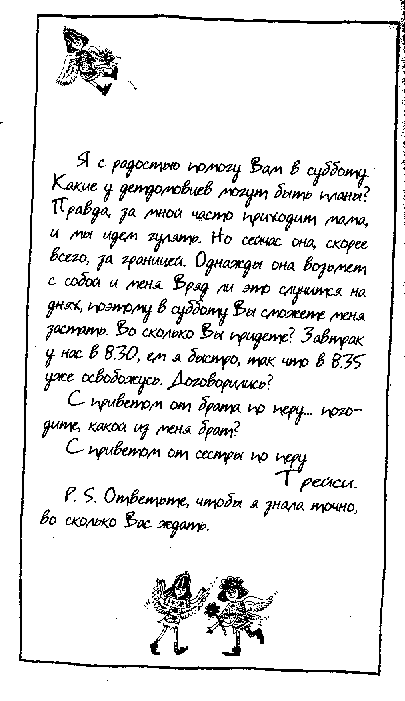 Я с радостью помогу Вам в субботу.
Какие у детдомовцев могут быть планы?
Правда, за мной часто приходит мама,
и мы идем гулять. Но сейчас она, скорее
всего, за границей. Однажды она возьмет
с собой и меня. Вряд ли это случится на
днях, поэтому в субботу Вы сможете меня
застать. Во сколько Вы придете? Завтрак
у нас в 8.30, ем я быстро, так что в 8.35
уже освобожусь. Договорились?
С приветом от брата по перу... пого-
дите, какой из меня брат?
С приветом от сестры по перу
Трейси.
P. S. Ответьте, чтобы я знала точно,
во сколько Вас ждать.